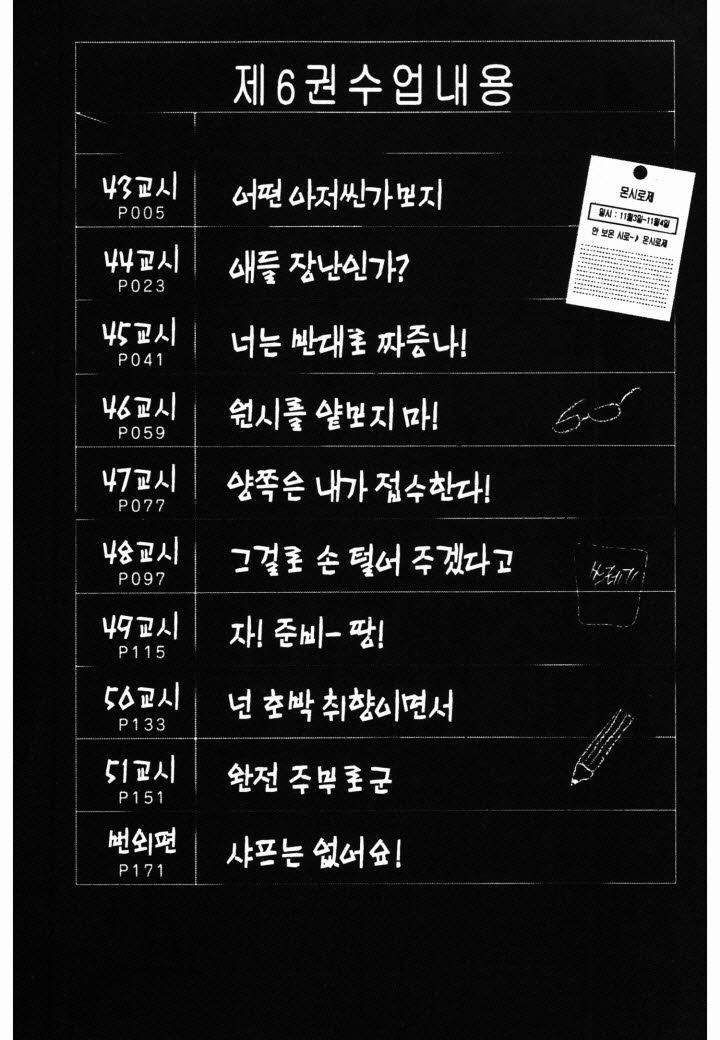 제6권수업내용
43교시
P005
어떤 아저씬가보지
44교시
P023
애들 장난인가?
45교시
P041
너는 반대로 짜증나!
46교시
P059
원시를 얕보지 마!
47교시
P077
양쪽은 내가 접수한다!
48교시
P097
그걸로 손 털어 주겠다고
49교시
P115
자! 준비- 땅!
50교시
P133
넌 호박 취향이면서
51교시
P151
완전 주부로군
번외편
P171
샤프는 없어요!
몬시로제
일시 : 11월3일~11월4일
안 보온 시로-> 몬시로제
쓰레기